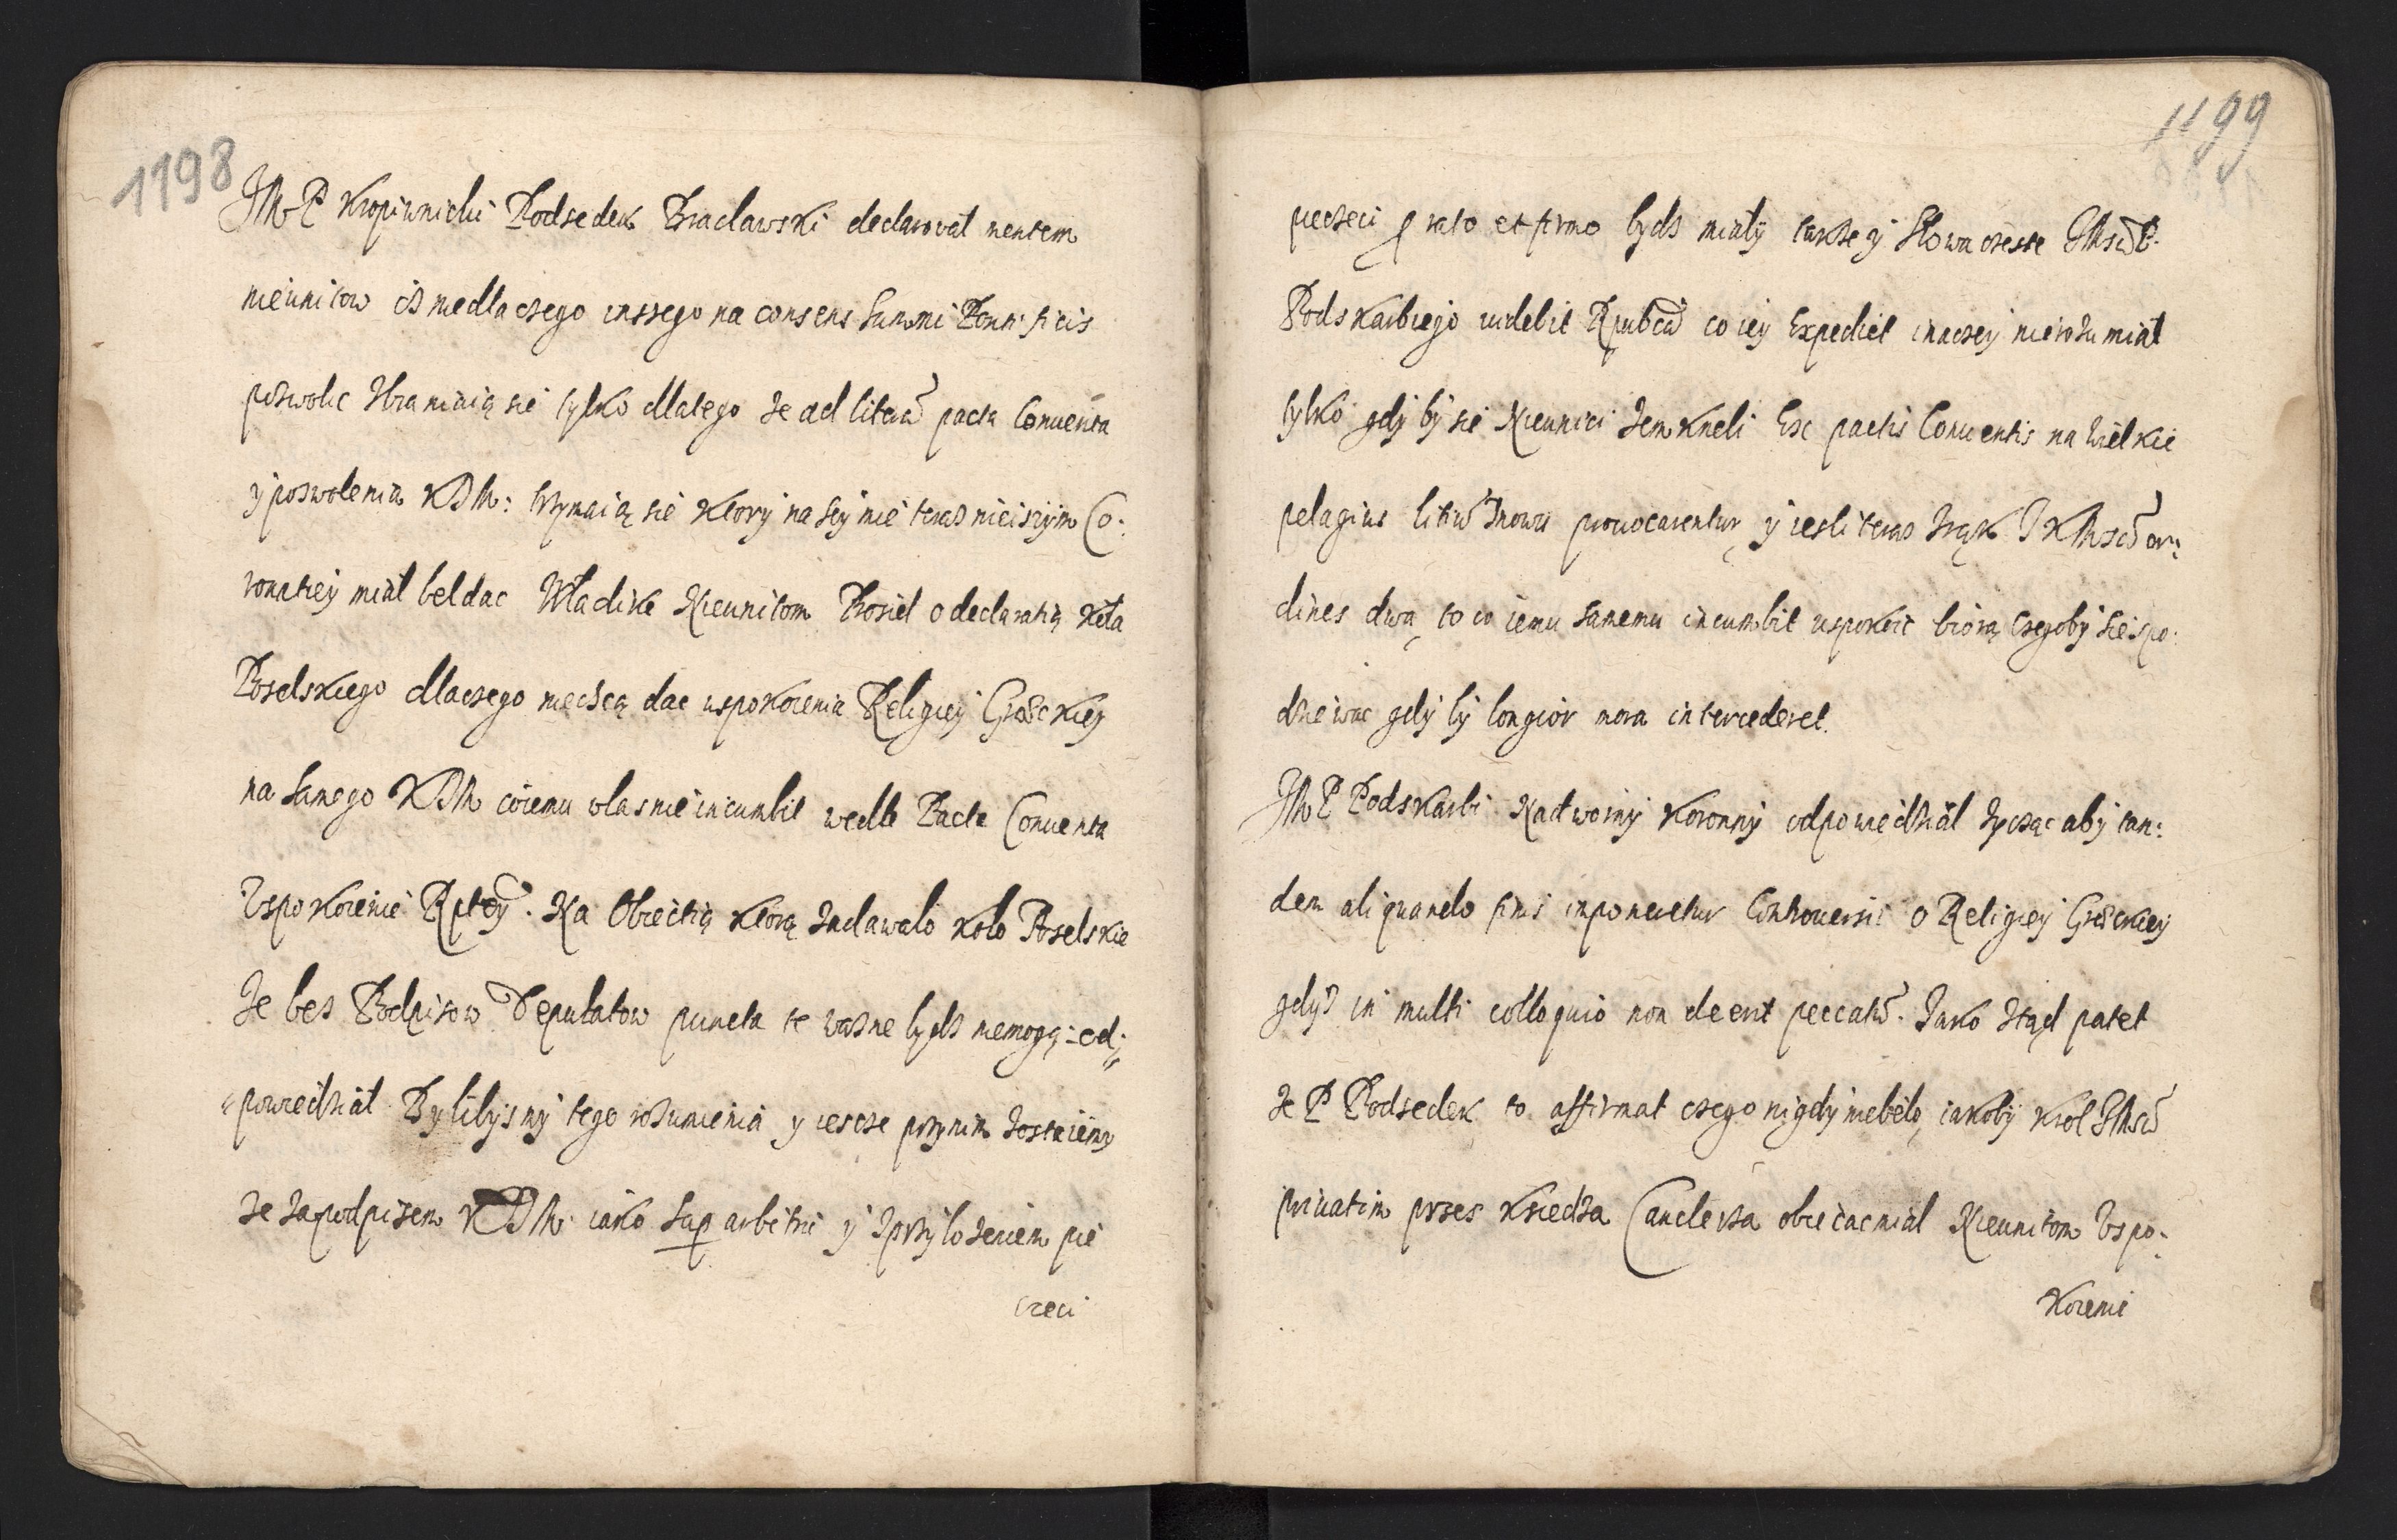 1198
JMP Kropiwnicki Podsedek Braclawski declarovat mentem
nieunitow isz niedla czego inssego na consens Summi Pontificis
pozwolic zbraniaią sie tylko dlatego ze ad literā pacta Conuenta
y poswolenia KJM: trzymaią sie ktory na seymie teraz nieiszym Co:
ronatiey miał bel dac Władike Nieunitom Prosiel o declaratią Koła
Poselskiego dlaczego niechcą dac uspokoienia Religiey Greckiey
na samego KJM co iemu wlasnie incumbit wedle Pacta Conuenta
Uspokoienie Rptey. Na Obiectią ktorą zadawalo kolo Poselskie
Ze bes Podpisow Deputatow puncta te wazne bydz niemogą: od:
powiedział Bylibysmy tego rozumienia y iescze przy nim zostaiemy
ze za podpisem KJM iako Sup arbitri y z przylozeniem pie
czeci
1199
pieczeci p rato et firmo bydz miały takze y Słowa czesne JMsci P.
Podskarbiego iudebit Rpubcā co iey Expediet inaczey nierozumiał
tylko gdy by sie Nieunici zemkneli Exc pactis Conuentis na wielkie
pelagius litiū znowu prouocarentur, y iesli teraz z rąk JKMsci or:
dines dwa, to co iemu samemu incumbit uspokoic biorą czegoby sie spo:
dziewac gdy by longior mora intercederet.
JMP Podskarbi Nadworny Koronny odpowiedział zycząc aby tan:
dem aliquando finis imponeretur Controuersii o Religiey Greckiey
gdyz in multi colloquio non deerit peccatū. Jako ztąd patet
Ze P Podsedek to affirmat czego nigdy niebeło, iakoby Krol JMsci
priuatim przes Ksiedza Canclerza obiecac miał Nieunitom Uspo:
koienie